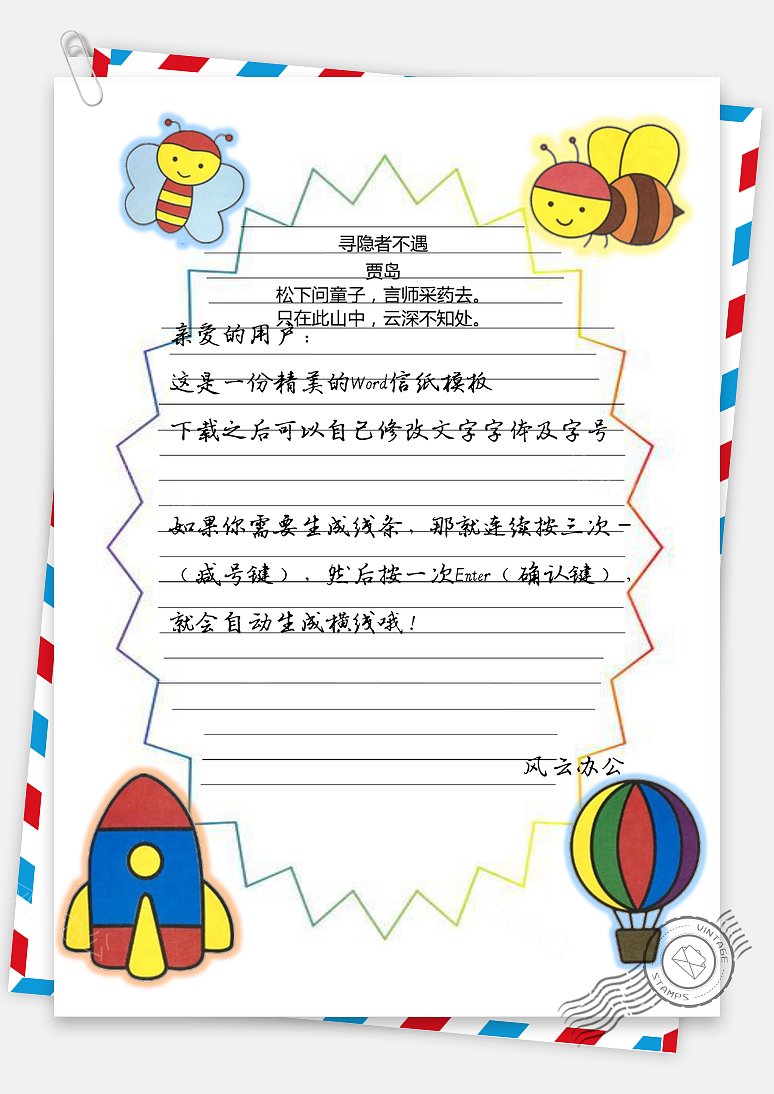 寻隐者不遇
贾岛
松下问童子，言师采药去。
只在此山中，云深不知处。
亲爱的用户：
这是一份精美的Word信纸模板
下载之后可以自己修改文字字体及字号
如果你需要生成线条，那就连续按三次－
（减号键），然后按一次Enter（确认键），
就会自动生成横线哦！
风云办公
VINTAGE
STAMPS